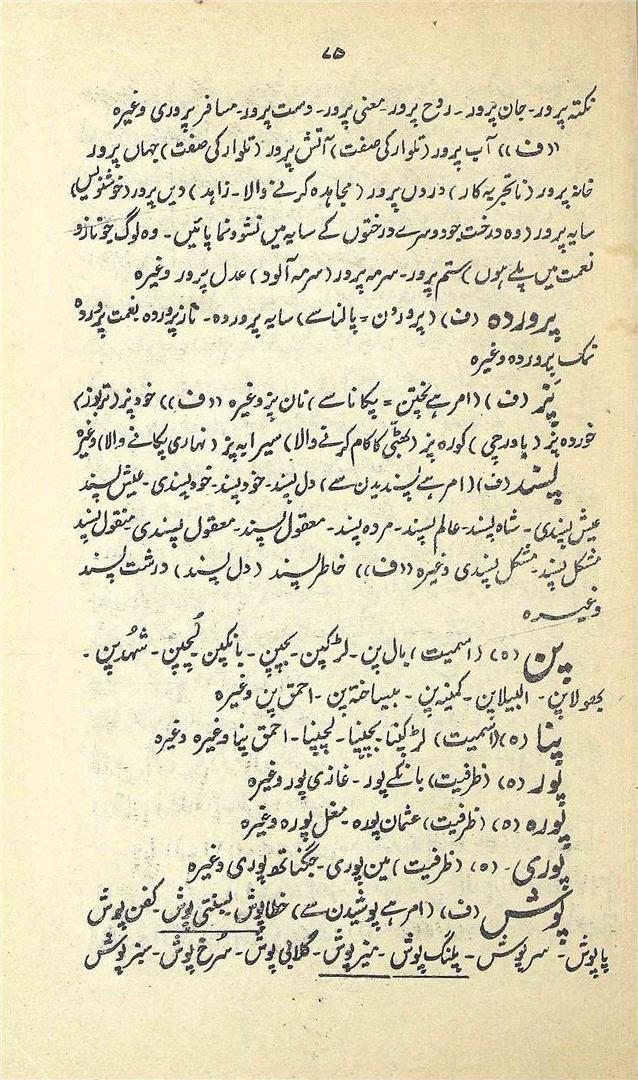 ۷۵
نکتہ پرور۔ جان پرور۔ روح پرور۔ معنی پرور۔ دست پرور۔ مسافر پروری وغیرہ
((ف)) آب پرور (تلوار کی صفت) آتش پرور (تلوار کی صفت) جہاں پرور
خانہ پرور (ناتجربہ کار) دروں پرور (مجاہدہ کرنے والا۔ زاہد) دیں پرور (خوشنویس)
سایہ پرور (وہ درخت جو دوسرے درختوں کے سایہ میں نشوونما پائیں۔ وہ لوگ جو ناز و
نعمت میں پلے ہوں) ستم پرور۔ سرمہ پرور (سرمہ آلود) عدل پرور وغیرہ
پروردہ (ف) (پروردن = پالنا سے) سایہ پروردہ۔ ناز پروردہ نعمت پروردہ
نمک پروردہ وغیرہ
پز (ف) (امر ہے پختن = پکانا سے) نان پز وغیرہ ((ف)) خود پز (تربوز)
خوردہ پز (باورچی) کورہ پز (بھٹی کا کام کرنے والا) سیرابہ پز (نہاری پکانے والا) وغیرہ
پسند (ف) (امر ہے پسندیدن سے) دل پسند۔ خود پسند۔ خود پسندی۔ عیش پسند
عیش پسندی۔ شاہ پسند۔ عالم پسند۔ مردہ پسند۔ معقول پسند۔ معقول پسندی منقول پسند
مشکل پسند۔ مشکل پسندی وغیرہ ((ف)) خاطر پسند (دل پسند) درشت پسند
وغیرہ
پن (ہ) (اسمیت) بال پن۔ لڑکپن۔ بچپن۔ بانکپن لُچپن۔ شہدپن۔
بھولاپن۔ البیلاپن۔ کمینہ پن۔ بیساختہ پن۔ احمق پن وغیرہ
پنا (ہ) (اسمیت) لڑکپنا۔ بچپنا۔ لچپنا۔ احمق پنا وغیرہ وغیرہ
پور (ہ) (ظرفیت) بانکے پور۔ غازی پور وغیرہ
پورہ (ہ) (ظرفیت) عثمان پورہ۔ مغل پورہ وغیرہ
پوری۔ (ہ) (ظرفیت) مین پوری۔ جگناتھ پوری وغیرہ
پوش (ف) (امر ہے پوشیدن سے) خطا پوش۔ بسنتی پوش۔ کفن پوش
پاپوش۔ سرپوش۔ پلنگ پوش۔ میز پوش۔ گلابی پوش۔ سرخ پوش۔ سبز پوش